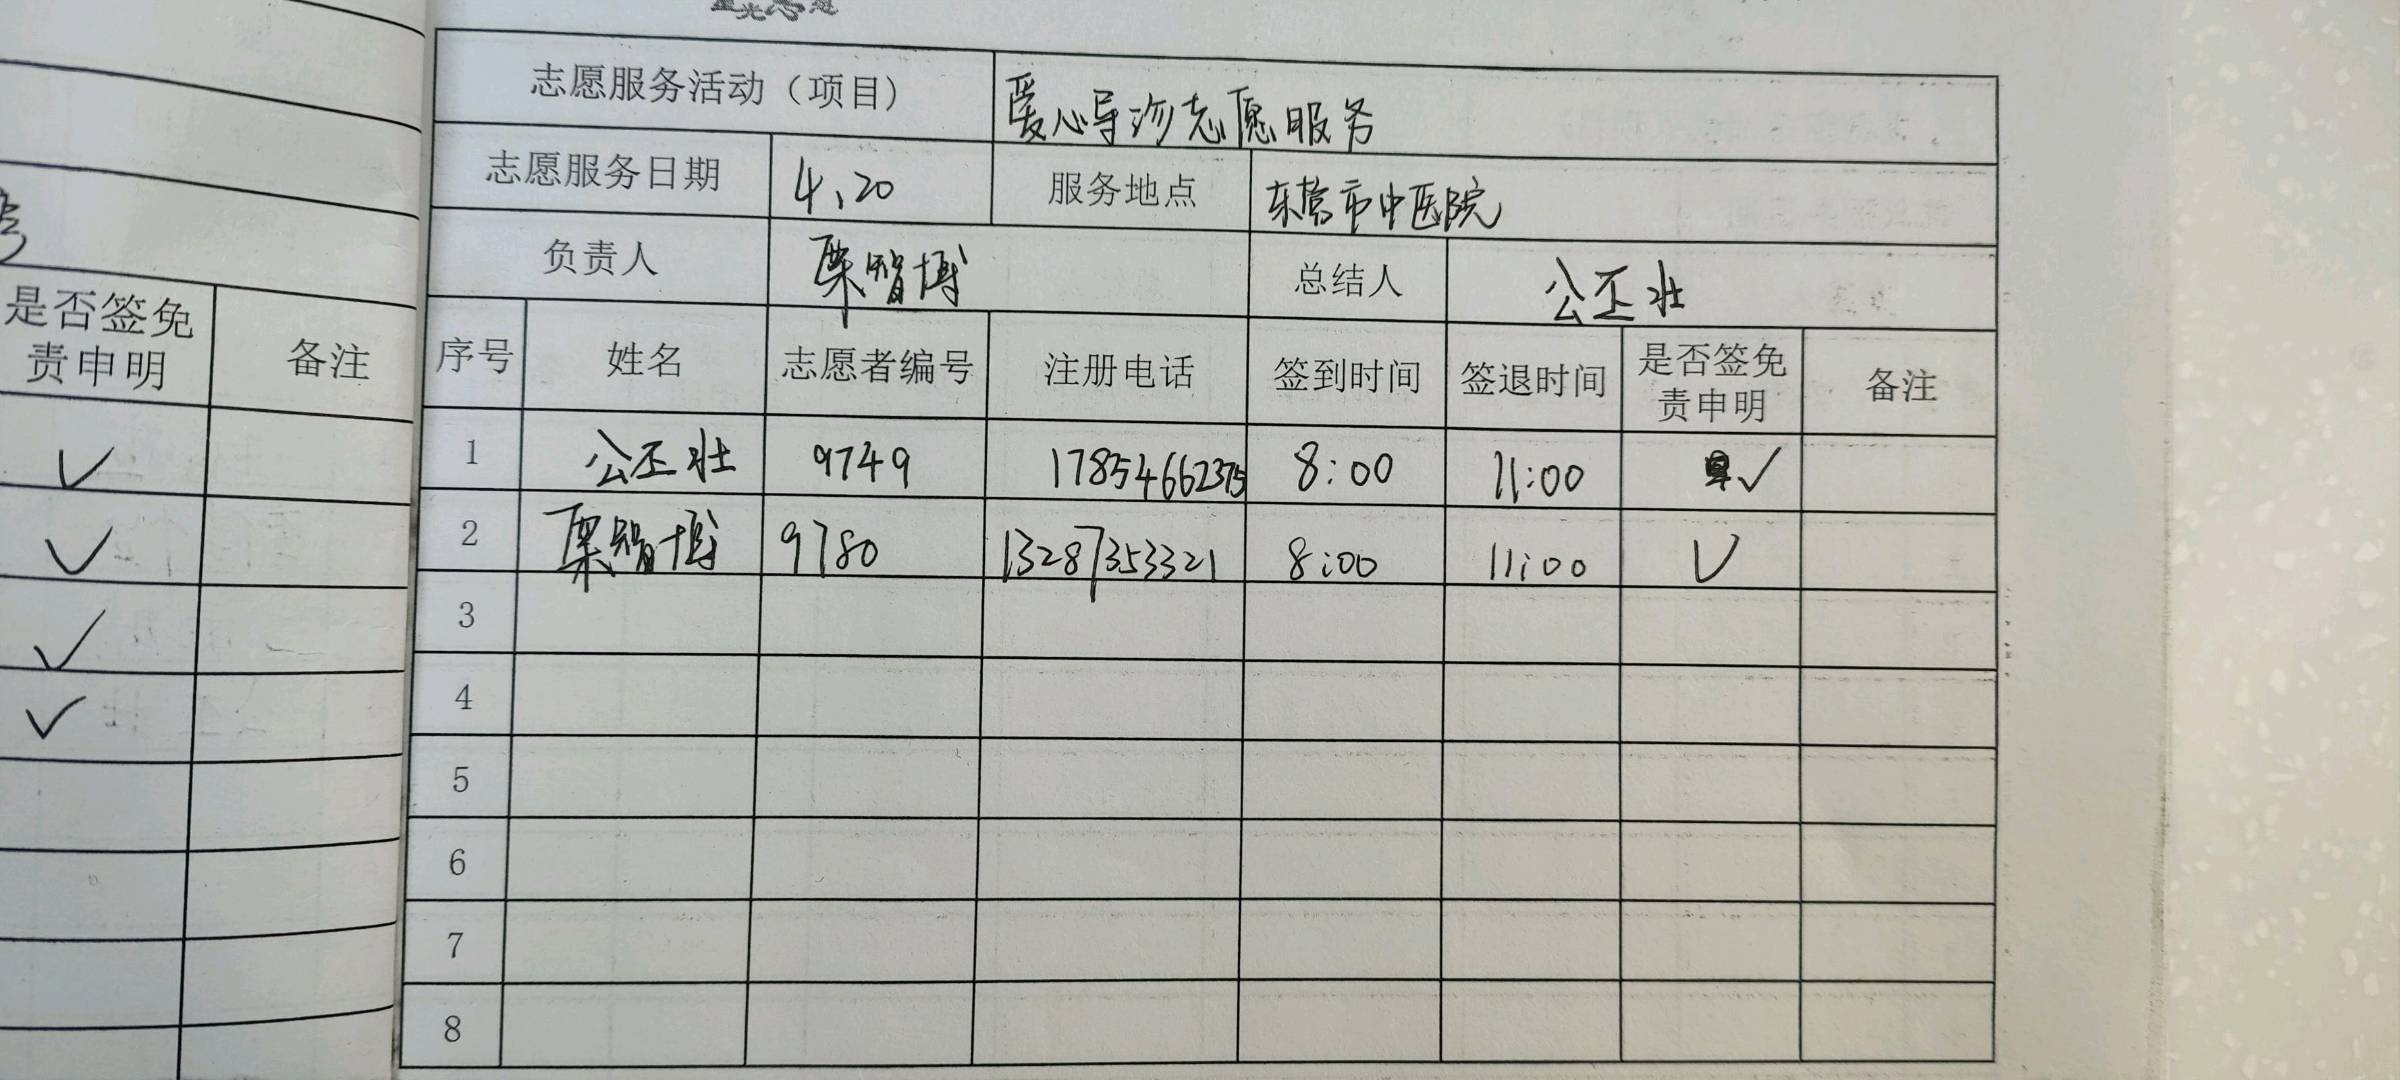 志愿服务活动（项目） 爱心导诊志愿服务
志愿服务日期 4、20 服务地点 东营市中医院
负责人 栗智博 总结人 公丕壮
序号 姓名 志愿者编号 注册电话 签到时间 签退时间 是否签免责申明 备注
1 公丕壮 9749 17854662375 8:00 11:00 ✓
2 栗智博 9780 13287353321 8:00 11:00 ✓
3
4
5
6
7
8
是否签免
责申明
备注
✓
✓
✓
✓